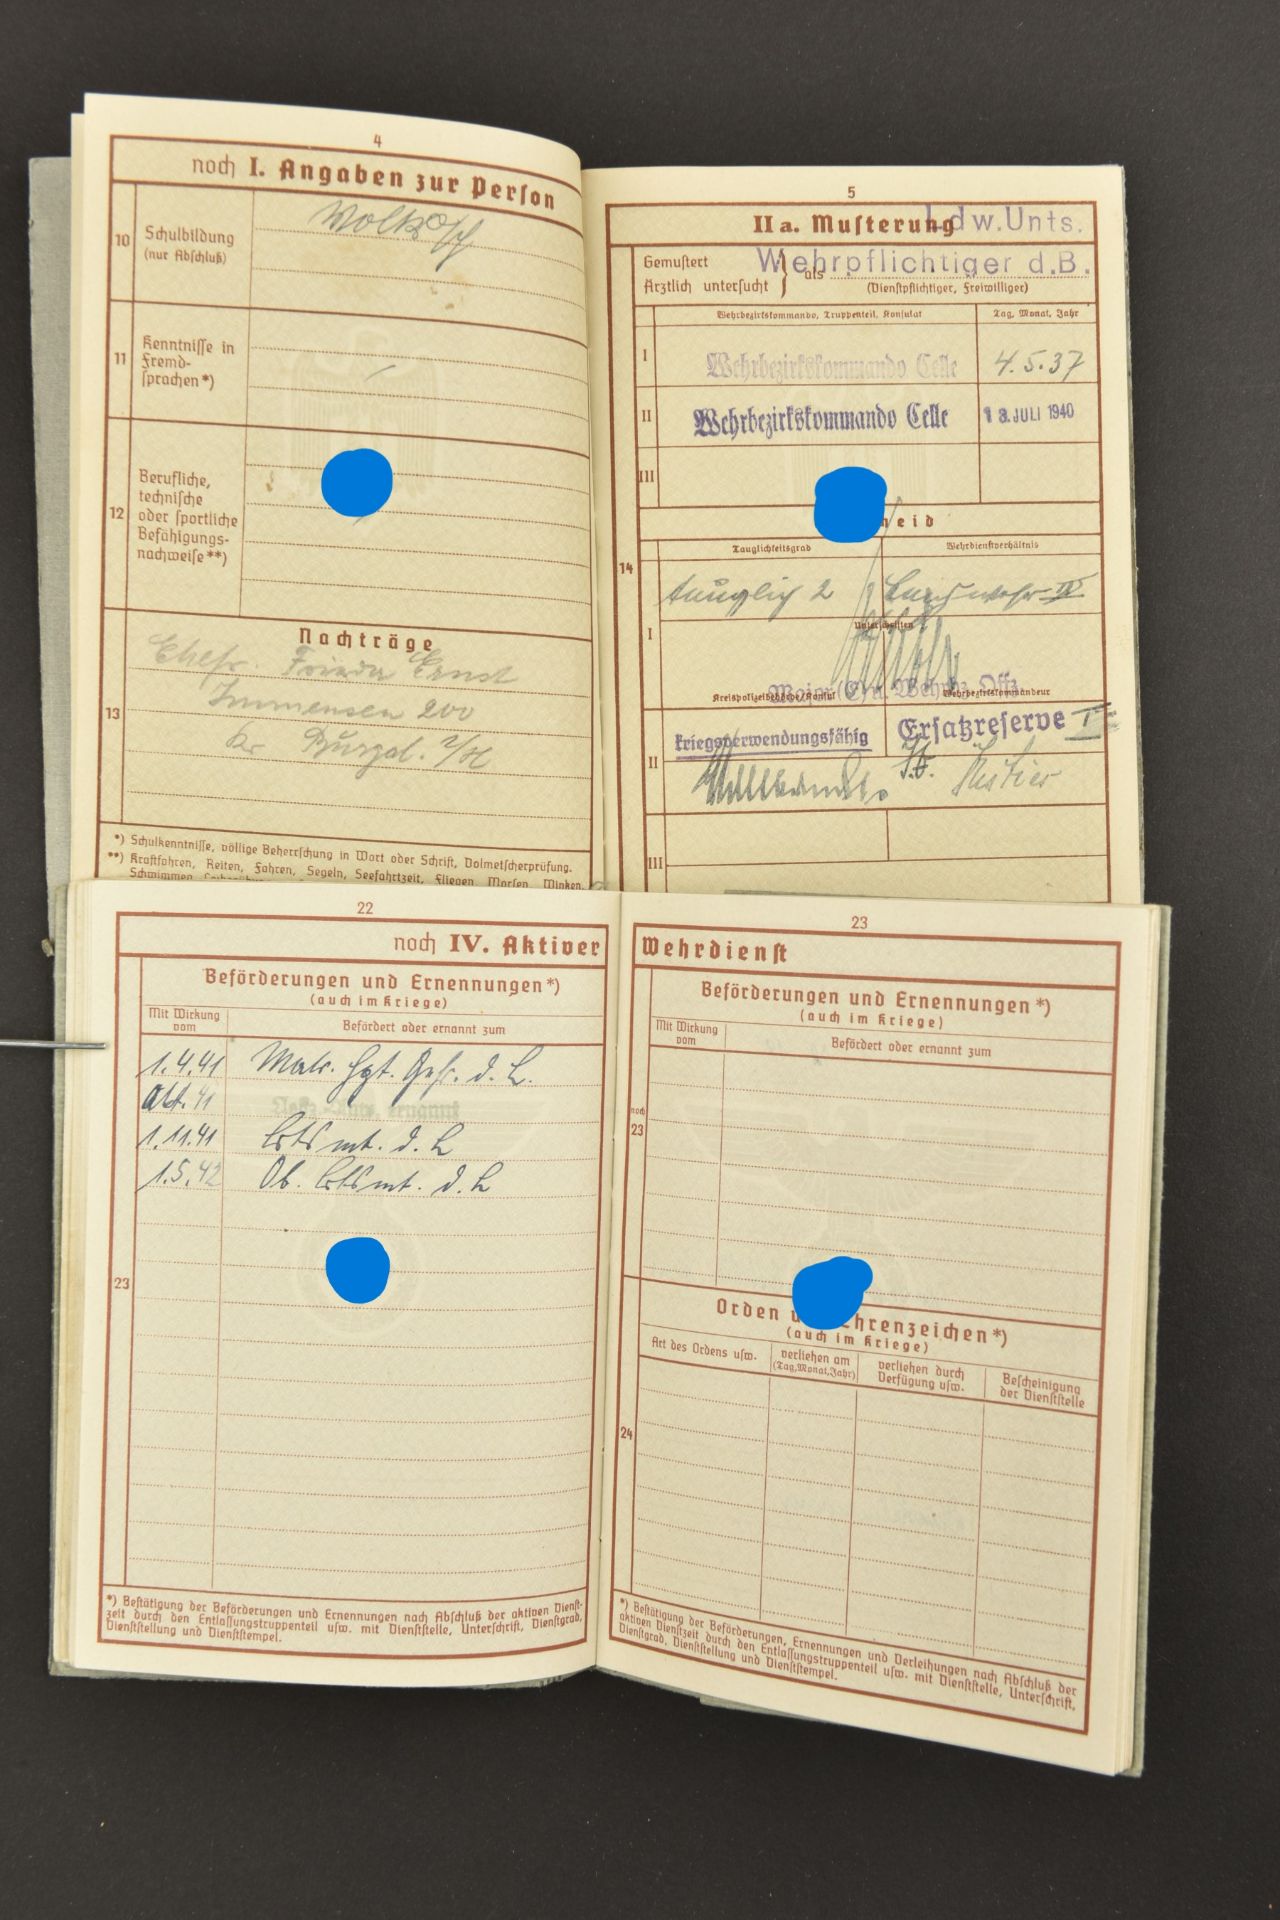 4
noch I. Angaben zur Person
10
Schulbildung
(nur Abschluß)
11
Kenntnisse in
Fremd-
sprachen*)
12
Berufliche,
technische
oder sportliche
Befähigungs-
nachweise**)
Nachträge
13
Ehefr. Frieda Ernst
Immensen 200
Kr Burgd. i/H
*) Schulkenntnisse, völlige Beherrschung in Wort oder Schrift, Dolmetscherprüfung.
**) Kraftfahren, Reiten, Fahren, Segeln, Seefahrtzeit, Fliegen, Morsen, Winken,
5
IIa. Musterung
Ldw.Unts.
Gemustert
Ärztlich untersucht } als
Wehrpflichtiger d.B.
(Dienstpflichtiger, Freiwilliger)
Wehrbezirkskommando, Truppenteil, Konsulat
Tag, Monat, Jahr
I
Wehrbezirkskommando Celle
4.5.37
II
Wehrbezirkskommando Celle
18. JULI 1940
III
eid
14
Tauglichkeitsgrad
Wehrdienstverhältnis
I
tauglich 2
Landwehr II
Unterschriften
Major (E) u. Wehrbez. Offz.
Kreispolizeibehörde/Konsul
Wehrbezirkskommandeur
II
kriegsverwendungsfähig
Ersatzreserve I
III
22
noch IV. Aktiver
Beförderungen und Ernennungen*)
(auch im Kriege)
Mit Wirkung
vom
Befördert oder ernannt zum
1.4.41 Matr. Hpt. Gefr. d. L.
Okt. 41
1.11.41 Btsmt. d. L
1.5.42 Ob. Btsmt. d. L
23
*) Bestätigung der Beförderungen und Ernennungen nach Abschluß der aktiven Dienst-
zeit durch den Entlassungstruppenteil usw. mit Dienststelle, Unterschrift, Dienstgrad,
Dienststellung und Dienststempel.
23
Wehrdienst
Beförderungen und Ernennungen*)
(auch im Kriege)
Mit Wirkung
vom
Befördert oder ernannt zum
noch
23
Orden u hrenzeichen*)
(auch im Kriege)
Art des Ordens usw.
verliehen am
(Tag,Monat,Jahr)
verliehen durch
Verfügung usw.
Bescheinigung
der Dienststelle
24
*) Bestätigung der Beförderungen, Ernennungen und Verleihungen nach Abschluß der
aktiven Dienstzeit durch den Entlassungstruppenteil usw. mit Dienststelle, Unterschrift,
Dienstgrad, Dienststellung und Dienststempel.